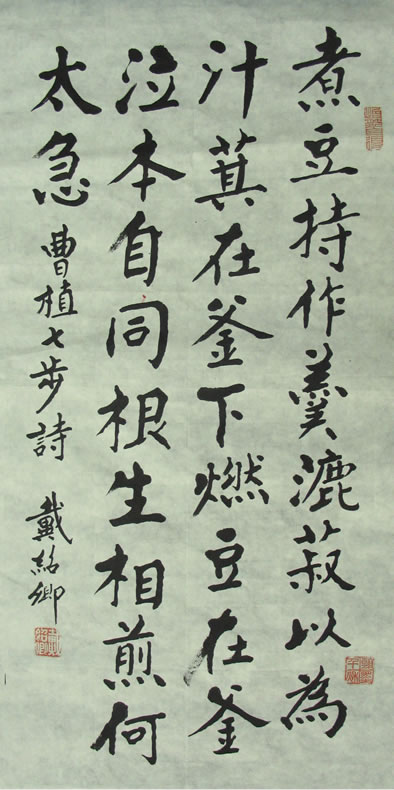 煮豆持作羹漉菽以為
汁萁在釜下燃豆在釜
泣本自同根生相煎何
太急
曹植七步詩 戴紹卿